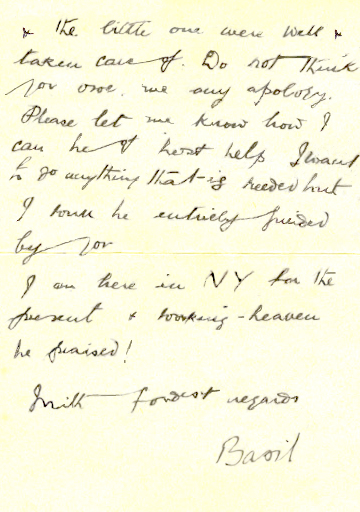 & the little one were well &
taken care of. Do not think
you owe me any apology.
Please let me know how I
can be of best help I want
to do anything that is needed but
I will be entirely guided
by you
I am here in NY for the
present & working - heaven
be praised!
With fondest regards
Basil